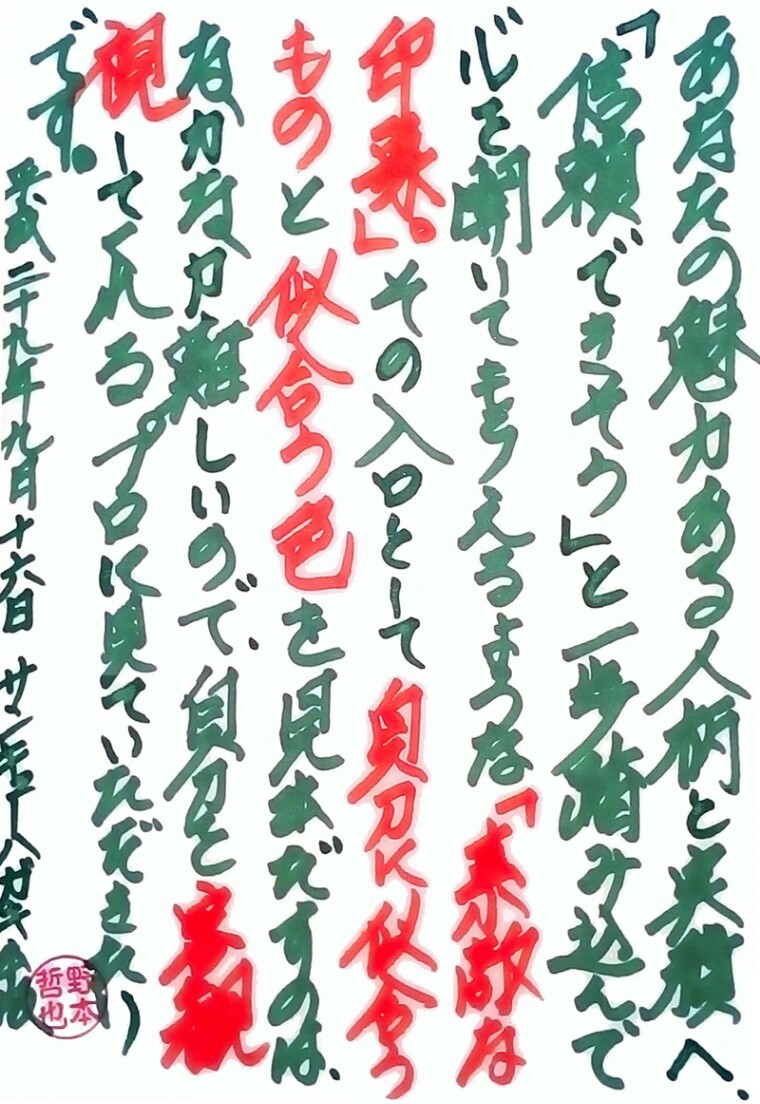 あなたの魅力ある人柄と笑顔へ、
「信頼できそう」と一歩踏み込んで
心を開いてもらえるような「素敵な
印象」。その入口として自分に似合う
ものと似合う色を見いだすのは、
なかなか難しいので、自分を客観
視してくれるプロに見ていただきた
です。
平成二十九年九月十六日
野本
哲也